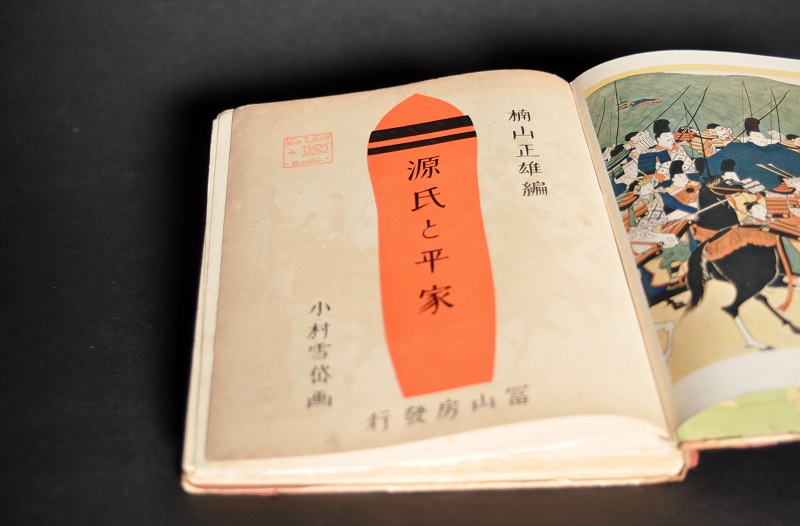 楠山正雄編
源氏と平家
小村雪岱画
冨山房發行